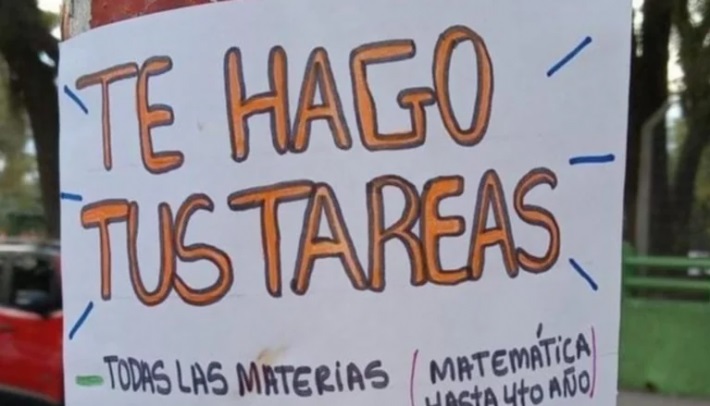 TE HAGO
TUS TAREAS
- TODAS LAS MATERIAS (MATEMÁTICA
HASTA 4to AÑO)